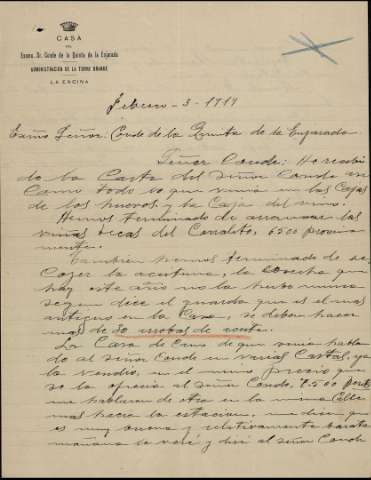 CASA
DEL
Excmo. Sr. Conde de la Quinta de la Enjarada
ADMINISTRACIÓN DE LA TORRE GRANDE
LA ENCINA
Febrero - 3 - 1919
Exmo Señor Conde de la Quinta de la Enjarada
Señor Conde: He recibi
do la Carta del Señor Conde
Como todo lo que venia en las Cajas
de los huevos y la Caja del vino.
Hemos terminado de arrancar las
viñas secas del Corralito, 6500
mente.
Tambien hemos terminado de re
Cojer la aceituna, la Cosecha que
hay este año no la hubo nunca
segun dice el guarda que es el mas
antiguo en la Casa, se deben hacer
mas de 80 arrobas de aceite.
La Casa de Cano de que venia habla
do al señor Conde en varias Cartas, ya
la vendio, en el mismo precio que
se la ofrecia al señor Conde, 7.500
me hablaron de otra en la misma Calle
mas hacia la estacion, me dicen que
es muy buena y relativamente barata
mañana la veré y diré al señor Conde